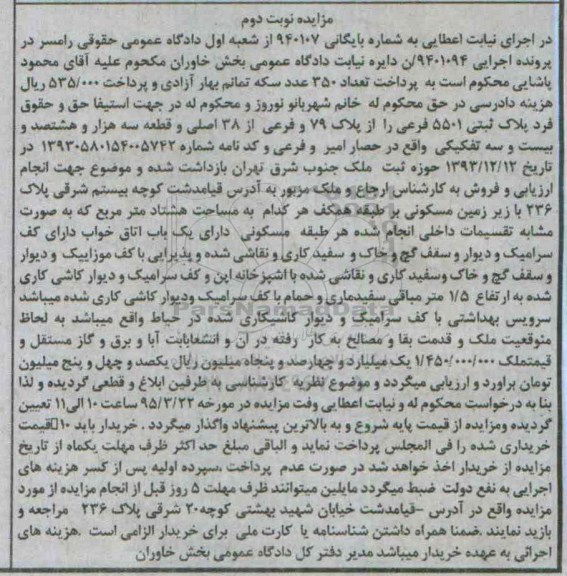 مزایده نوبت دوم
در اجرای نیابت اعطایی به شماره بایگانی ۹۴۰۱۰۷ از شعبه اول دادگاه عمومی حقوقی رامسر در
پرونده اجرایی ۹۴۰۱۰۹۴/ن دایره نیابت دادگاه عمومی بخش خاوران مکحوم علیه آقای محمود
پاشایی محکوم است به پرداخت تعداد ۳۵۰ عدد سکه تمانم بهار آزادی و پرداخت ۵۳۵/۰۰۰ ریال
هزینه دادرسی در حق محکوم له خانم شهربانو نوروز و محکوم له در جهت استیفا حق و حقوق
فرد پلاک ثبتی ۵۵۰۱ فرعی را از پلاک ۷۹ و فرعی از ۳۸ اصلی و قطعه سه هزار و هشتصد و
بیست و سه تفکیکی واقع در حصار امیر و فرعی و کد نامه شماره ۱۳۹۳۰۵۸۰۱۵۴۰۰۵۷۴۲ در
تاریخ ۱۳۹۳/۱۲/۱۲ حوزه ثبت ملک جنوب شرق تهران بازداشت شده و موضوع جهت انجام
ارزیابی و فروش به کارشناس ارجاع و ملک مزبور به آدرس قیامدشت کوچه بیستم شرقی پلاک
۲۳۶ با زیر زمین مسکونی بر طبقه همکف هر کدام به مساحت هشتاد متر مربع که به صورت
مشابه تقسیمات داخلی انجام شده هر طبقه مسکونی دارای یک باب اتاق خواب دارای کف
سرامیک و دیوار و سقف گچ و خاک و سفید کاری و نقاشی شده و پذیرایی با کف موزاییک و دیوار
و سقف گچ و خاک وسفید کاری و نقاشی شده با اشپزخانه اپن و کف سرامیک و دیوار کاشی کاری
شده به ارتفاع ۱/۵ متر مباقی سفیدماری و حمام با کف سرامیک ودیوار کاشی کاری شده میباشد
سرویس بهداشتی با کف سرامیک و دیوار کاسیکاری شده در حیاط واقع میباشد به لحاظ
منوقعیت ملک و قدمت بقا و مصالح به کار رفته در آن و انشعابات آبا و برق و گاز مستقل و
قیمتملک ۱/۴۵۰/۰۰۰/۰۰۰ یک میلیارد و چهارصد و پنجاه میلیون ریال یکصد و چهل و پنج میلیون
تومان براورد و ارزیابی میگردد و موضوع نظریه کارشناسی به طرفین ابلاغ و قطعی گردیده و لذا
بنا به درخواست محکوم له و نیابت اعطایی وقت مزایده در مورخه ۹۵/۳/۲۲ ساعت ۱۰ الی۱۱ تعیین
گردیده ومزایده از قیمت پایه شروع و به بالاترین پیشنهاد واگذار میگردد . خریدار باید ۱۰٪قیمت
خریداری شده را فی المجلس پرداخت نماید و الباقی مبلغ حد اکثر ظرف مهلت یکماه از تاریخ
مزایده از خریدار اخذ خواهد شد در صورت عدم پرداخت ،سپرده اولیه پس از کسر هزینه های
اجرایی به نفع دولت ضبط میگردد مایلین میتوانند ظرف مهلت ۵ روز قبل از انجام مزایده از مورد
مزایده واقع در آدرس –قیامدشت خیابان شهید بهشتی کوچه۲۰ شرقی پلاک ۲۳۶ مراجعه و
بازید نمایند .ضمنا همراه داشتن شناسنامه یا کارت ملی برای خریدار الزامی است .هزینه های
اجرائی به عهده خریدار میباشد مدیر دفتر کل دادگاه عمومی بخش خاوران
ParsNamadData